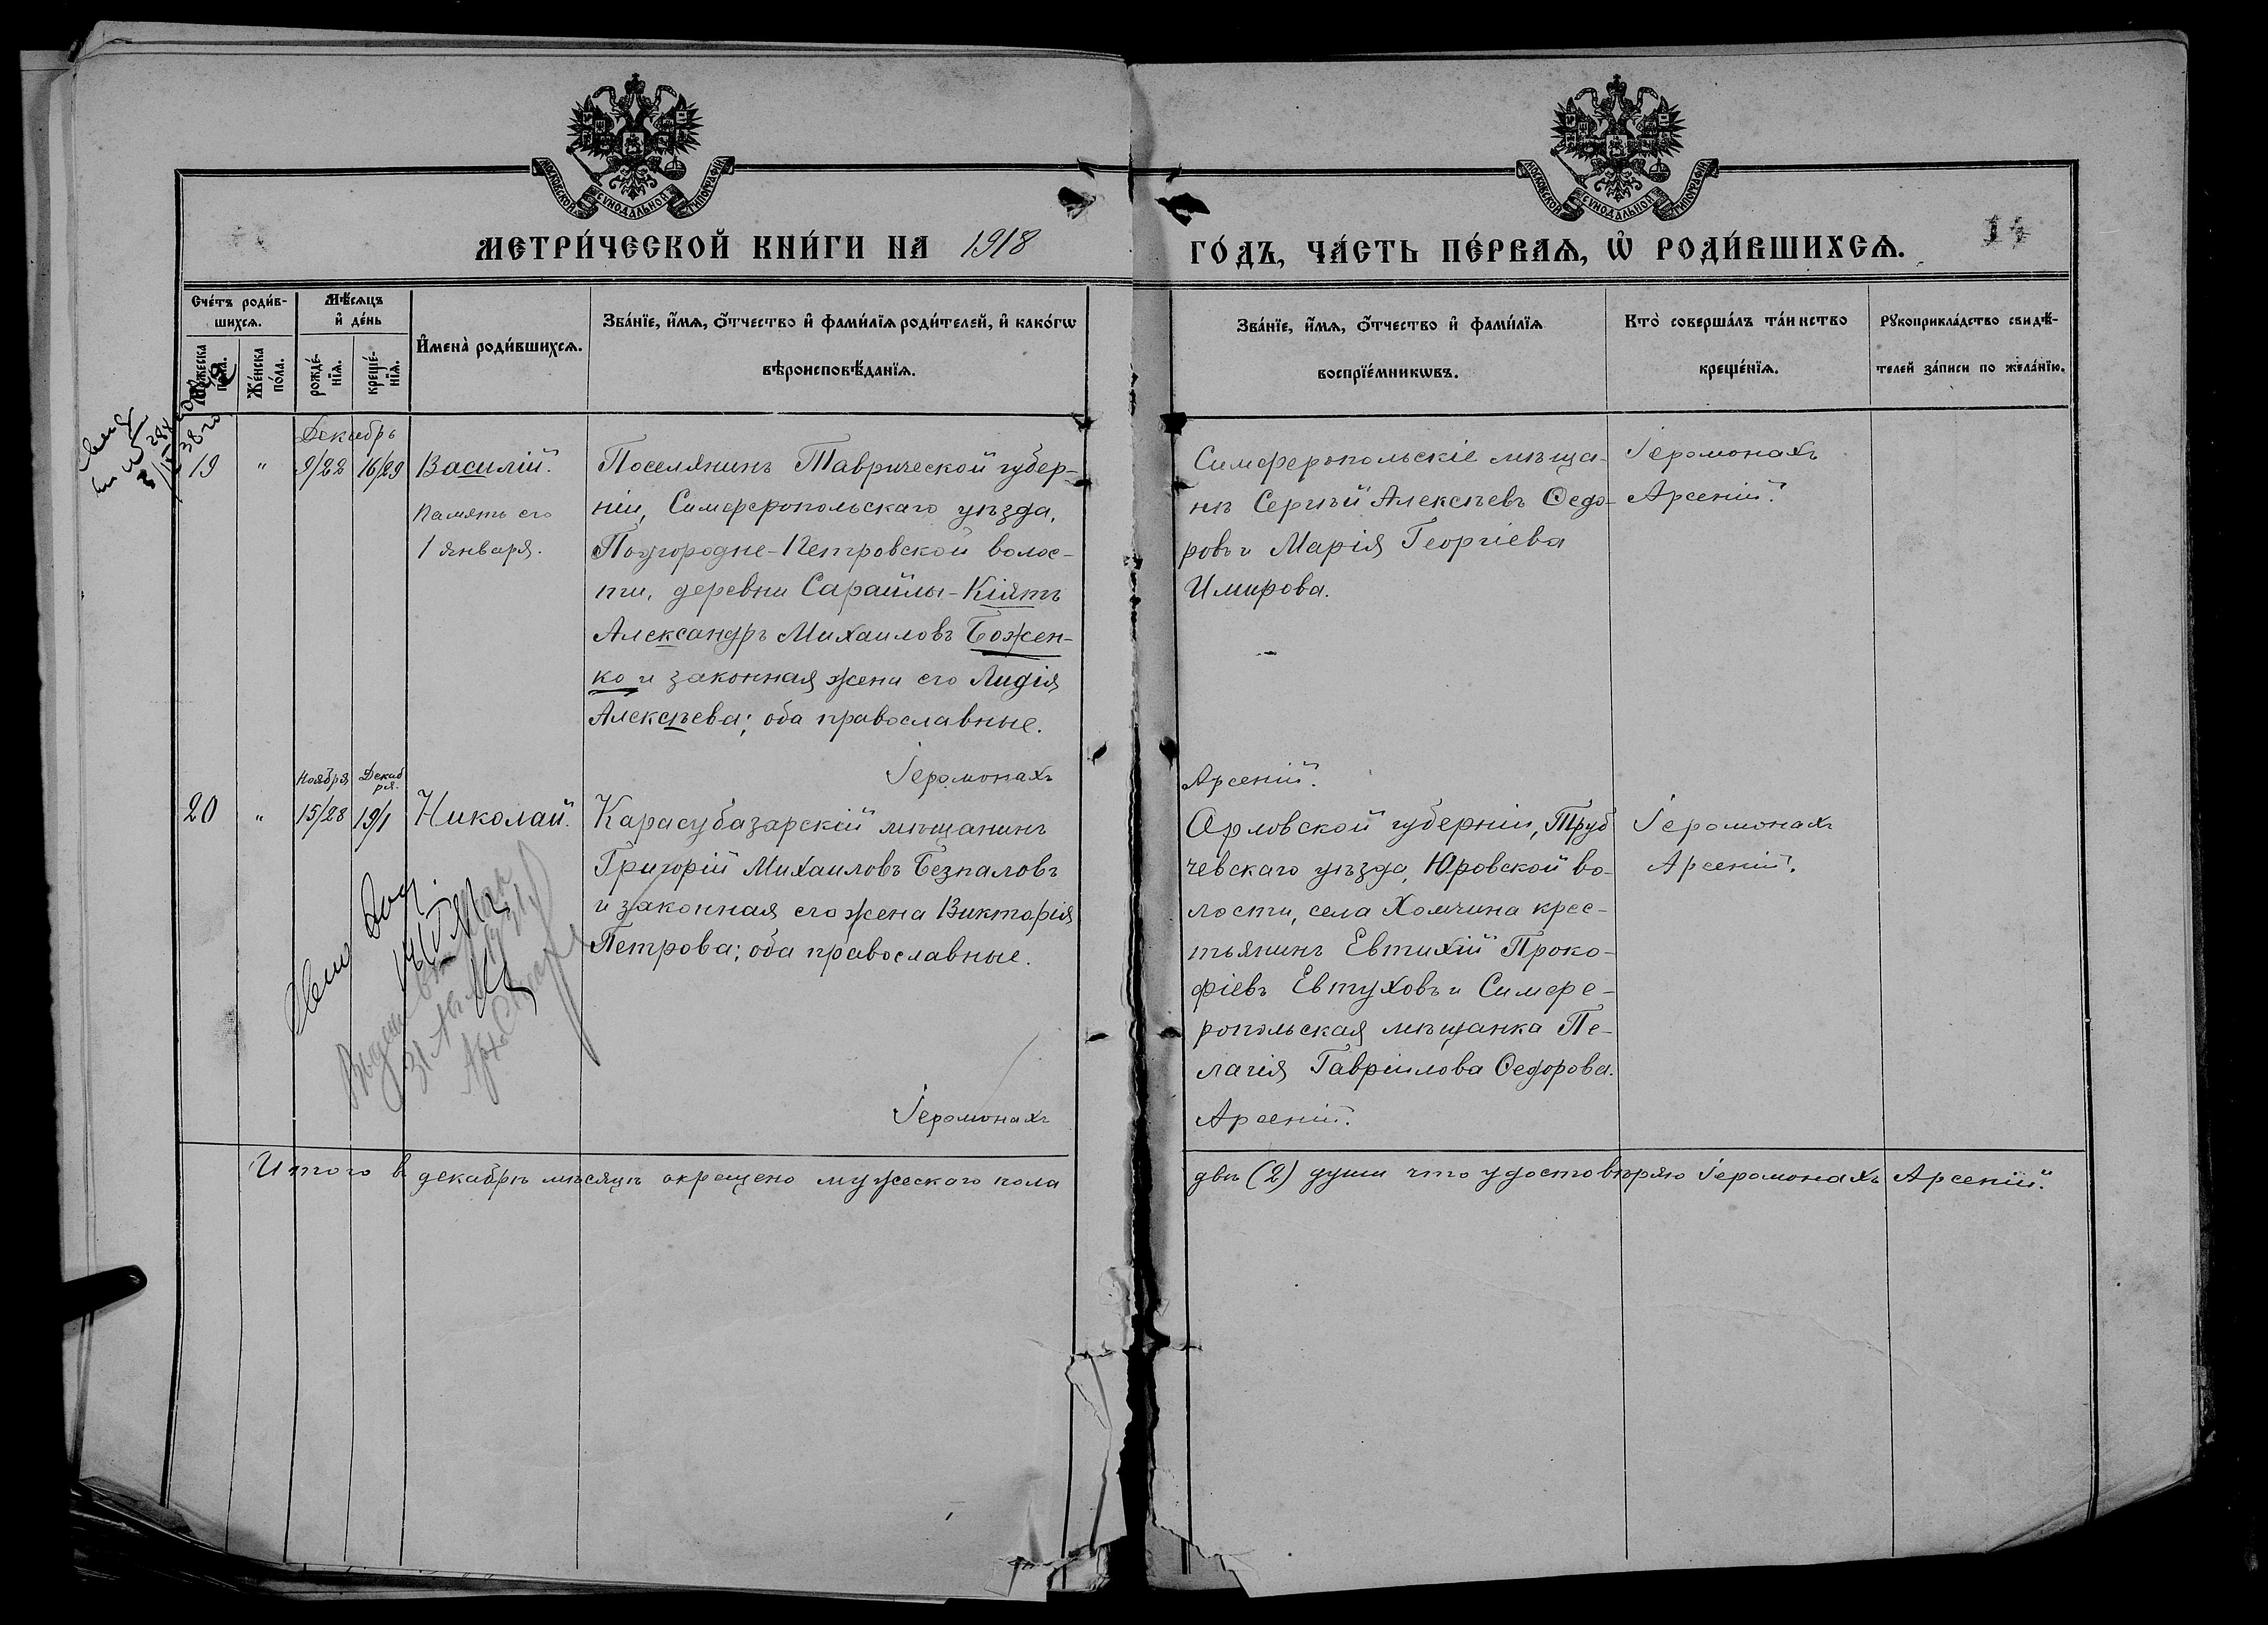 МОСКОВСКОЙ СУНОДАЛЬНОЙ ТИПОГРАФІИ
МОСКОВСКОЙ СУНОДАЛЬНОЙ ТИПОГРАФІИ
МЕТРИ́ЧЕСКОЙ КНИ́ГИ НА 1918
ГО́ДЪ, ЧА́СТЬ ПЕ́РВАѦ, Ѡ҆ РОДИ́ВШИХСѦ.
Сче́тъ роди́в-
шихсѧ.
Мꙋ́жеска
по́ла.
Же́нска
по́ла.
Мѣ́сѧцъ
и҆ де́нь
рожде́-
нїѧ.
креще́-
нїѧ.
И҆мена̀ роди́вшихсѧ.
Зва́нїе, и҆́мѧ, ѻ҆́тчество и҆ фами́лїѧ роди́телей, и҆ како́гѡ
вѣроисповѣ́данїѧ.
Зва́нїе, и҆́мѧ, ѻ҆́тчество и҆ фами́лїѧ
воспрїе́мникѡвъ.
Кто̀ соверша́лъ та́инство
креще́нїѧ.
Рꙋкоприкла́дство свидѣ́-
телей за́писи по жела́нїю.
Декабрь
19 " 9/22 16/29 Василій.
Память его
1 января.
Поселянинъ Таврической губер-
ніи, Симферопольскаго уѣзда,
Подгородне-Петровской волос-
ти, деревни Сарайлы-Кіятъ
Александръ Михаиловъ Божен-
ко и законная жена его Лидія
Алексѣева; оба православные.
Іеромонахъ
Симферопольскіе мѣща-
не Сергѣй Алексѣевъ Ѳедо-
ровъ и Марія Георгіева
Имирова.
Арсеній.
Іеромонахъ
Арсеній.
Ноября Декаб
ря.
20 " 15/28 19/1 Николай.
Карасубазарскій мѣщанинъ
Григорій Михаиловъ Безпаловъ
и законная его жена Викторія
Петрова; оба православные.
Іеромонахъ
Орловской губерніи, Труб
чевскаго уѣзда, Юровской во-
лости, села Хомчина крес-
тьянинъ Евтихій Проко-
фіевъ Евтуховъ и Симфе-
ропольская мѣщанка Пе-
лагія Гавріилова Ѳедорова.
Арсеній.
Іеромонахъ
Арсеній.
Итого в декабрѣ мѣсяцѣ окрещено мужескаго пола
двѣ (2) души что удостовѣряю Іеромонахъ Арсеній.